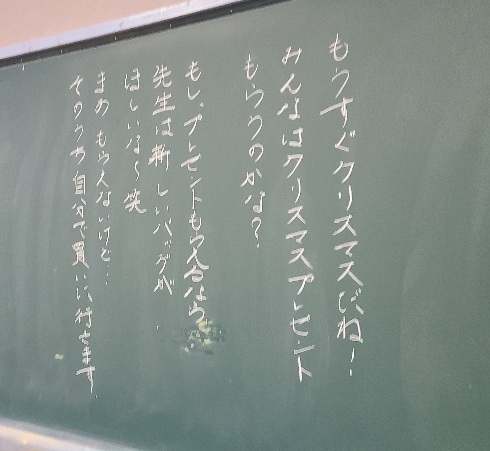 もうすぐクリスマスだね!
みんなはクリスマスプレゼント
もらうのかな?
もし、プレゼントもらえるなら、
先生は新しいバッグが
ほしいな〜笑
まぁ もらえないけど…
そのうち自分で買いに行きます